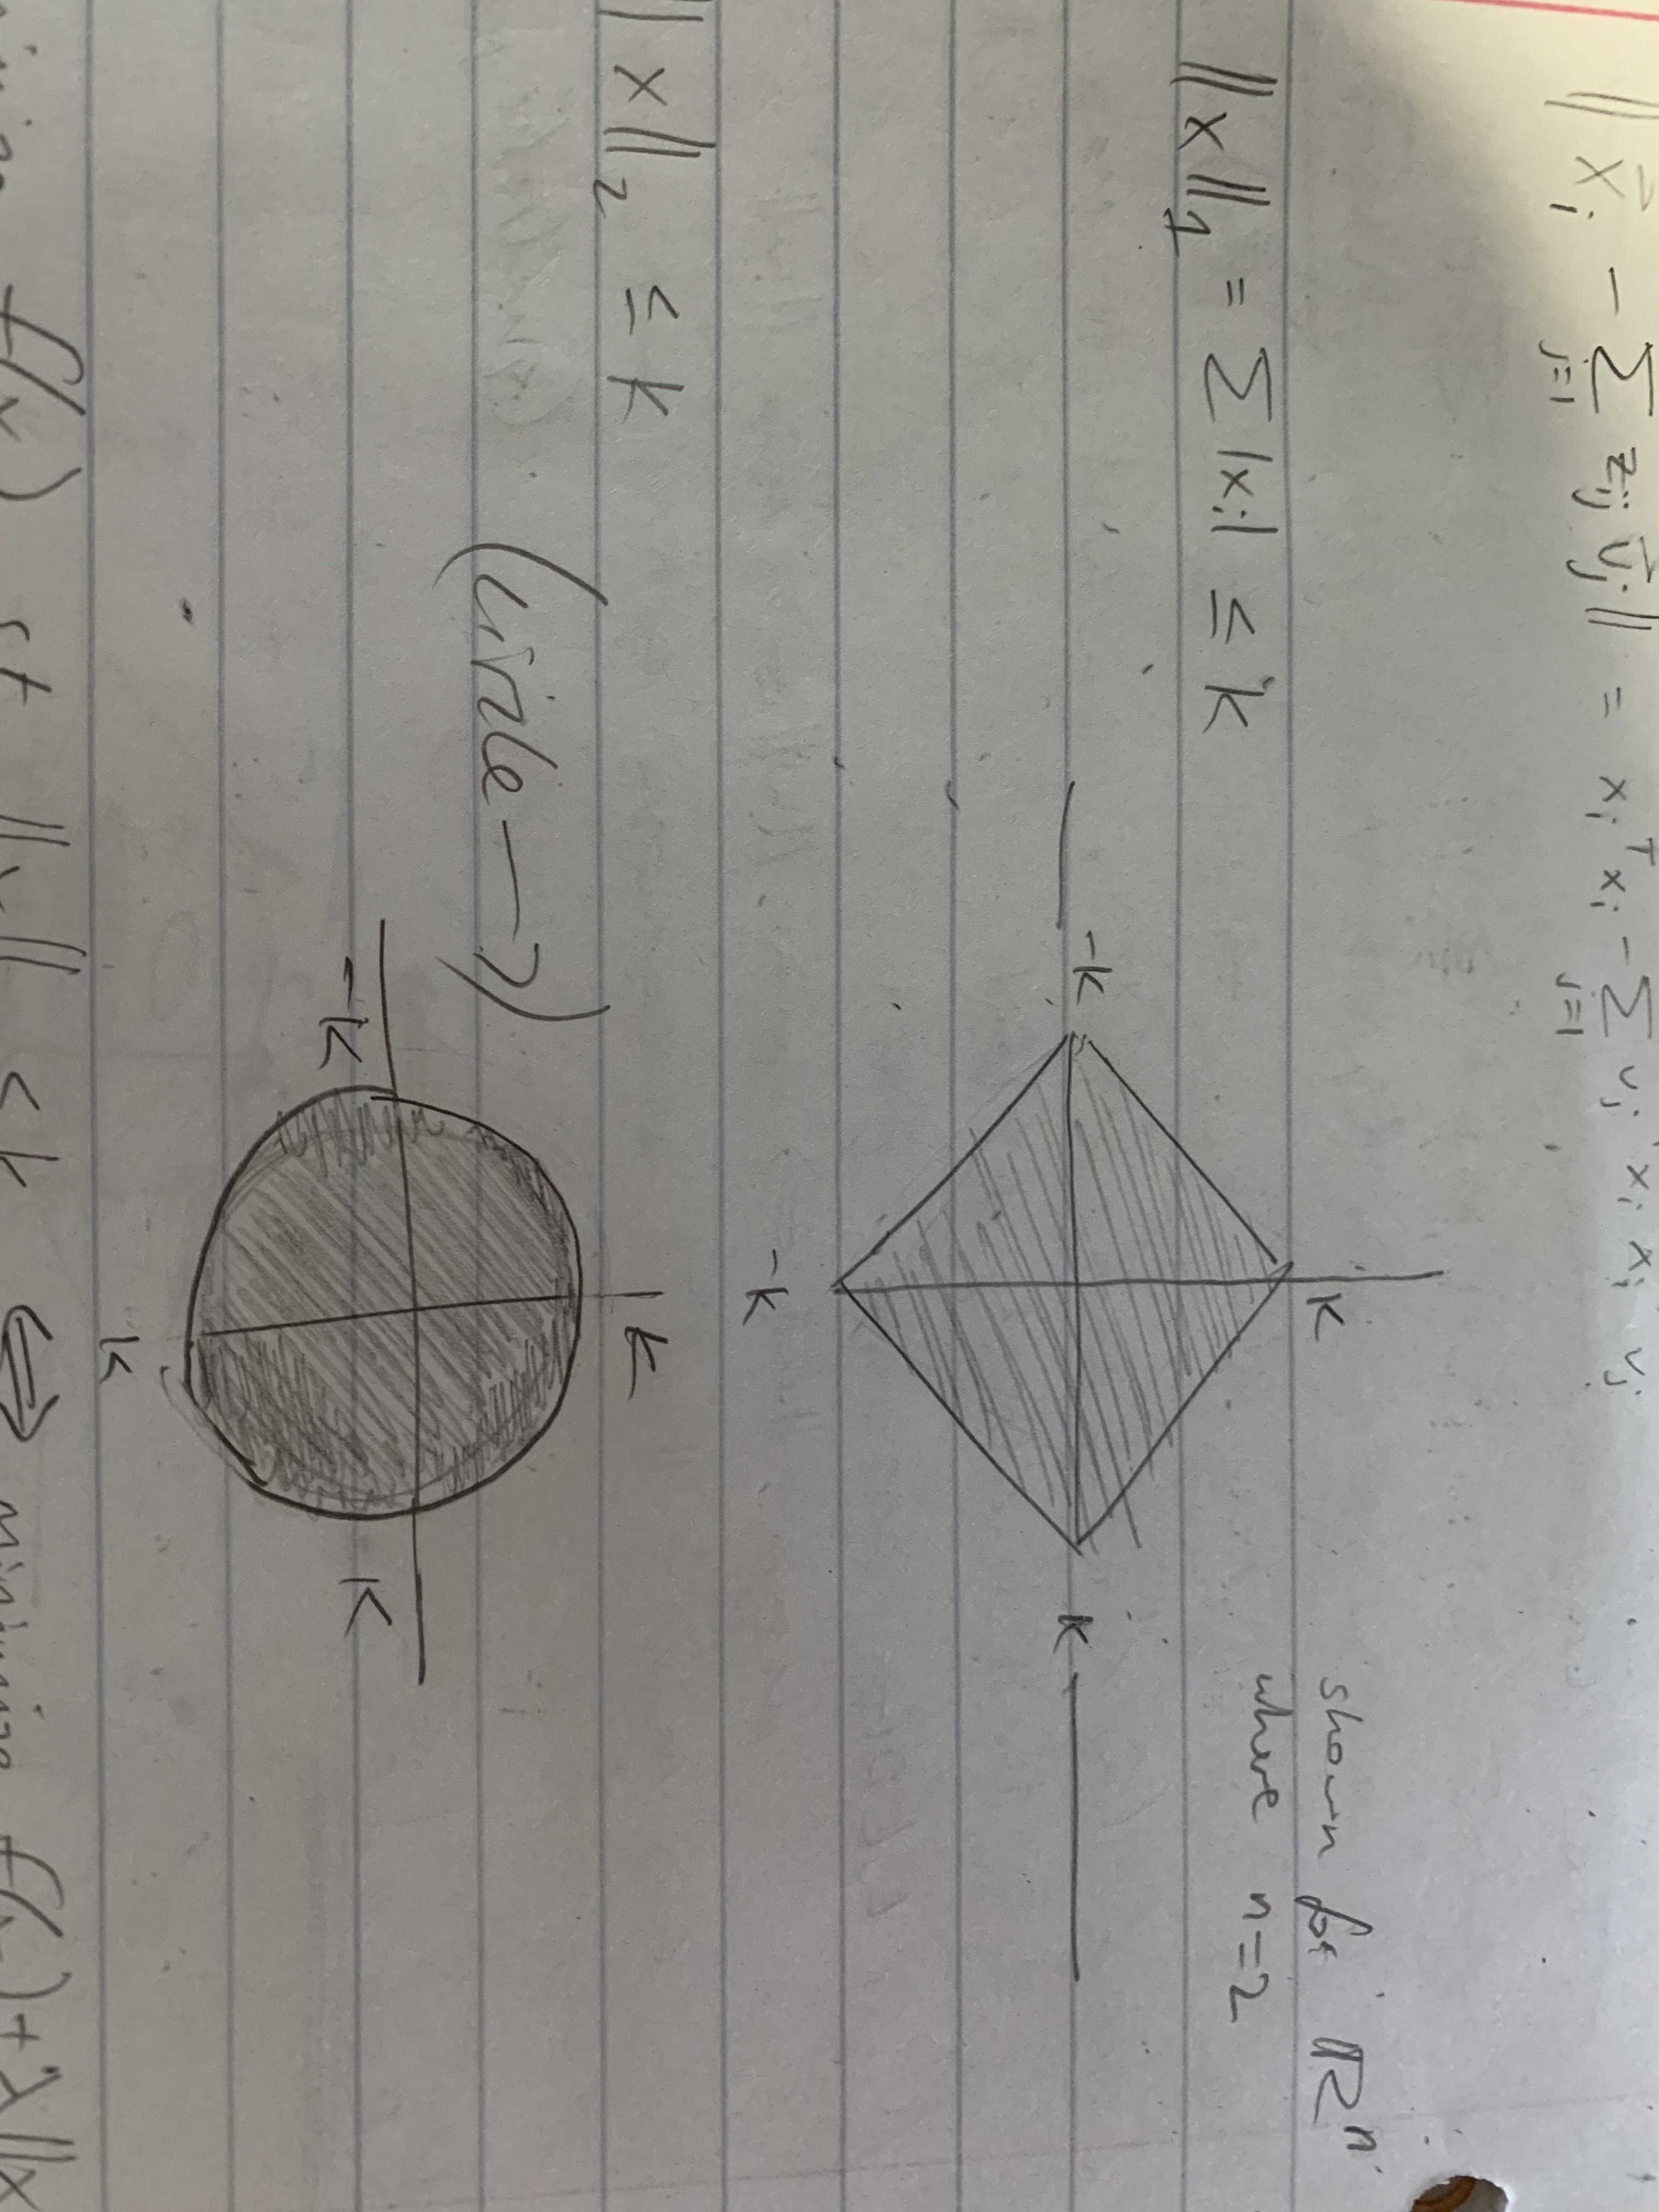 ‖x̃ᵢ - Σⱼ₌₁ zᵢⱼ ṽⱼ‖ = xᵢᵀxᵢ - Σⱼ₌₁ vⱼ xᵢ xᵢ vⱼ
‖x‖₁ = Σ|xᵢ| ≤ k
k
shown for ℝⁿ
where n=2
-k
k
-k
‖x‖₂ ≤ k
(circle →)
k
-k
k
k
f(x) st ‖x‖ ≤ k ⟺ minimize f(x)+λ‖x